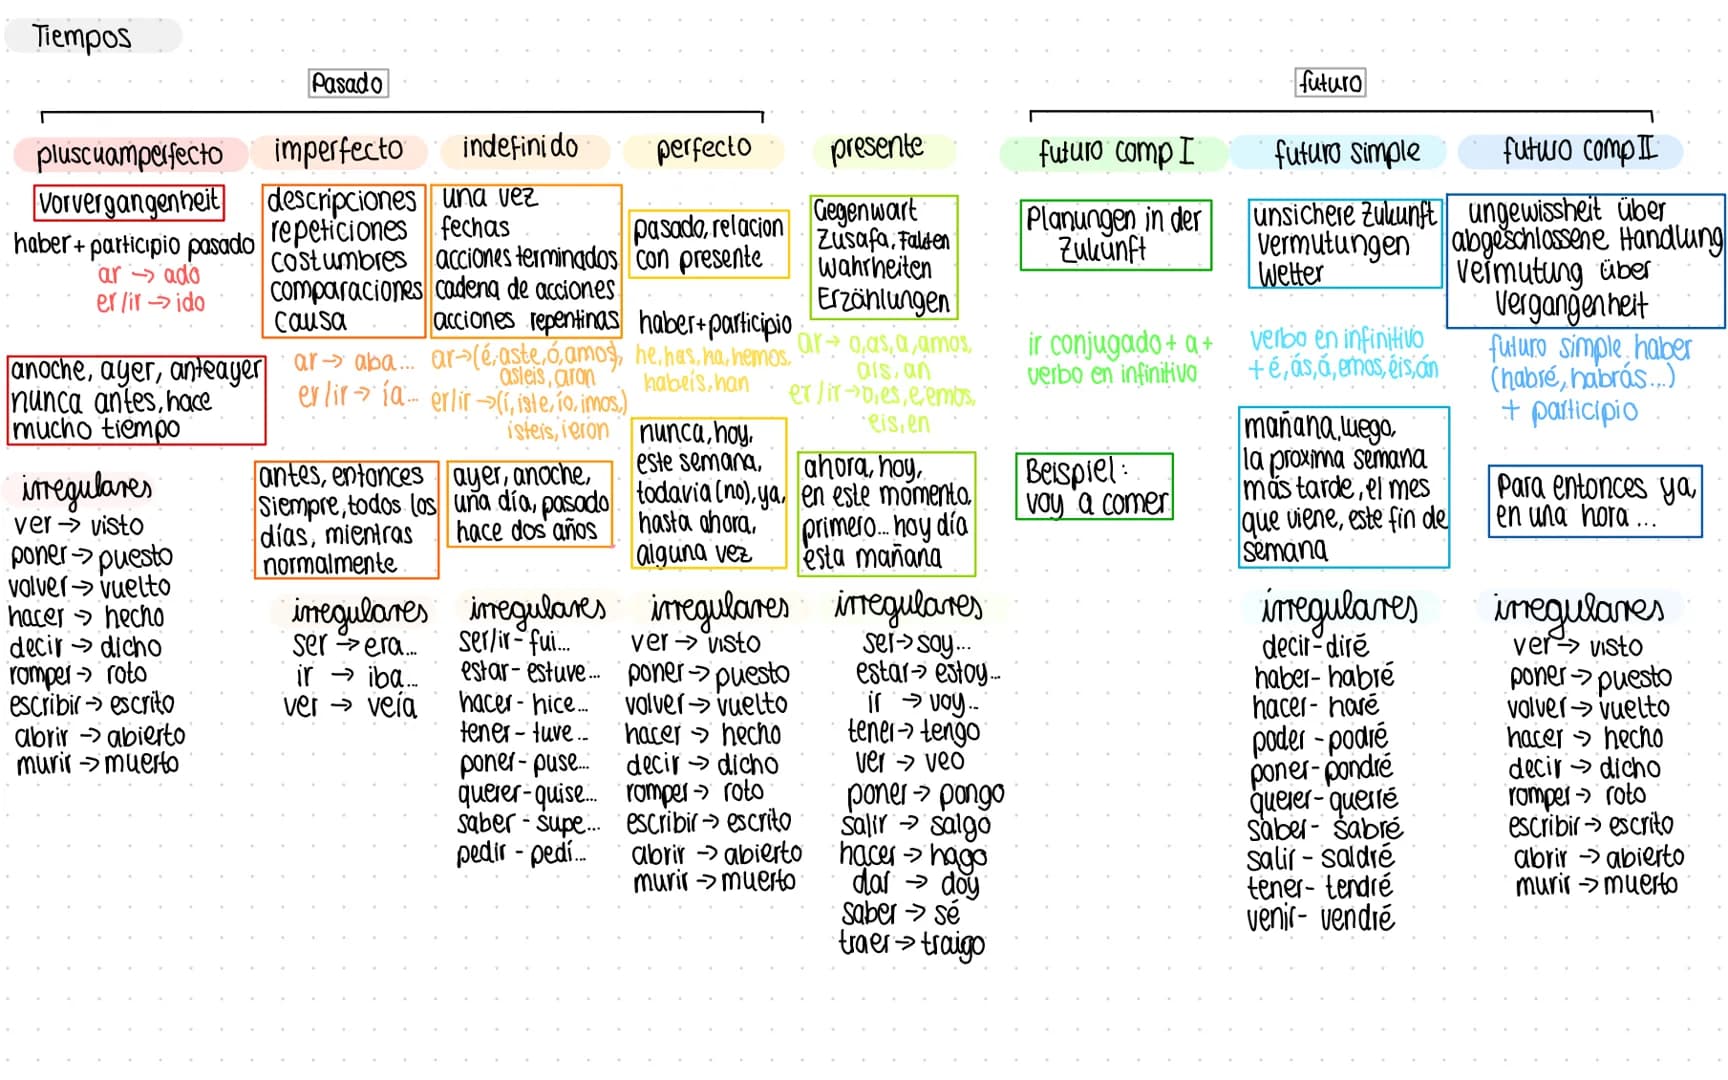 Tiempos
Pasado
futuro
pluscuamperfecto
Vorvergangenheit
haber + participio pasado
ar → ado
er/ir → ido
anoche, ayer, anteayer
nunca antes, hace
mucho tiempo
irregulares
ver → visto
poner → puesto
volver → vuelto
hacer → hecho
decir → dicho
romper → roto
escribir → escrito
abrir → abierto
murir → muerto
imperfecto
descripciones
repeticiones
costumbres
comparaciones
causa
ar → aba...
er/ir → ía...
antes, entonces
siempre, todos los
días, mientras
normalmente
irregulares
ser → era...
ir → iba...
ver → veía
indefinido
una vez
fechas
acciones terminados
cadena de acciones
acciones repentinas
ar → (é, aste, ó, amos),
asteis, aron
er/ir → (í, iste, ío, imos,)
isteis, ieron
ayer, anoche,
una día, pasado
hace dos años
irregulares
ser/ir - fui...
estar - estuve...
hacer - hice...
tener - tuve...
poner - puse...
querer - quise...
saber - supe...
pedir - pedí...
perfecto
pasado, relacion
con presente
haber + participio
he, has, ha, hemos,
habeís, han
nunca, hoy,
este semana,
todavia (no), ya,
hasta ahora,
alguna vez
irregulares
ver → visto
poner → puesto
volver → vuelto
hacer → hecho
decir → dicho
romper → roto
escribir → escrito
abrir → abierto
murir → muerto
presente
Gegenwart
Zusafa, Fakten
Wahrheiten
Erzählungen
ar → o, as, a, amos,
ais, an
er/ir → o, es, e, emos,
eis, en
ahora, hoy,
en este momento,
primero... hoy día
esta mañana
irregulares
ser → soy...
estar → estoy...
ir → voy..
tener → tengo
ver → veo
poner → pongo
salir → salgo
hacer → hago
dar → doy
saber → sé
traer → traigo
futuro comp I
Planungen in der
Zukunft
ir conjugado + a +
verbo en infinitivo
Beispiel:
voy a comer
futuro simple
unsichere Zukunft
Vermutungen
Wetter
verbo en infinitivo
+ é, ás, á, emos, éis, án
mañana, luego,
la proxima semana
más tarde, el mes
que viene, este fin de
semana
irregulares
decir - diré
haber - habré
hacer - haré
poder - podré
poner - pondré
querer - querré
saber - sabré
salir - saldré
tener - tendré
venir - vendré
futuro comp II
ungewissheit über
abgeschlossene Handlung
Vermutung über
Vergangenheit
futuro simple haber
(habré, habrás...)
+ participio
Para entonces ya,
en una hora ...
irregulares
ver → visto
poner → puesto
volver → vuelto
hacer → hecho
decir → dicho
romper → roto
escribir → escrito
abrir → abierto
murir → muerto